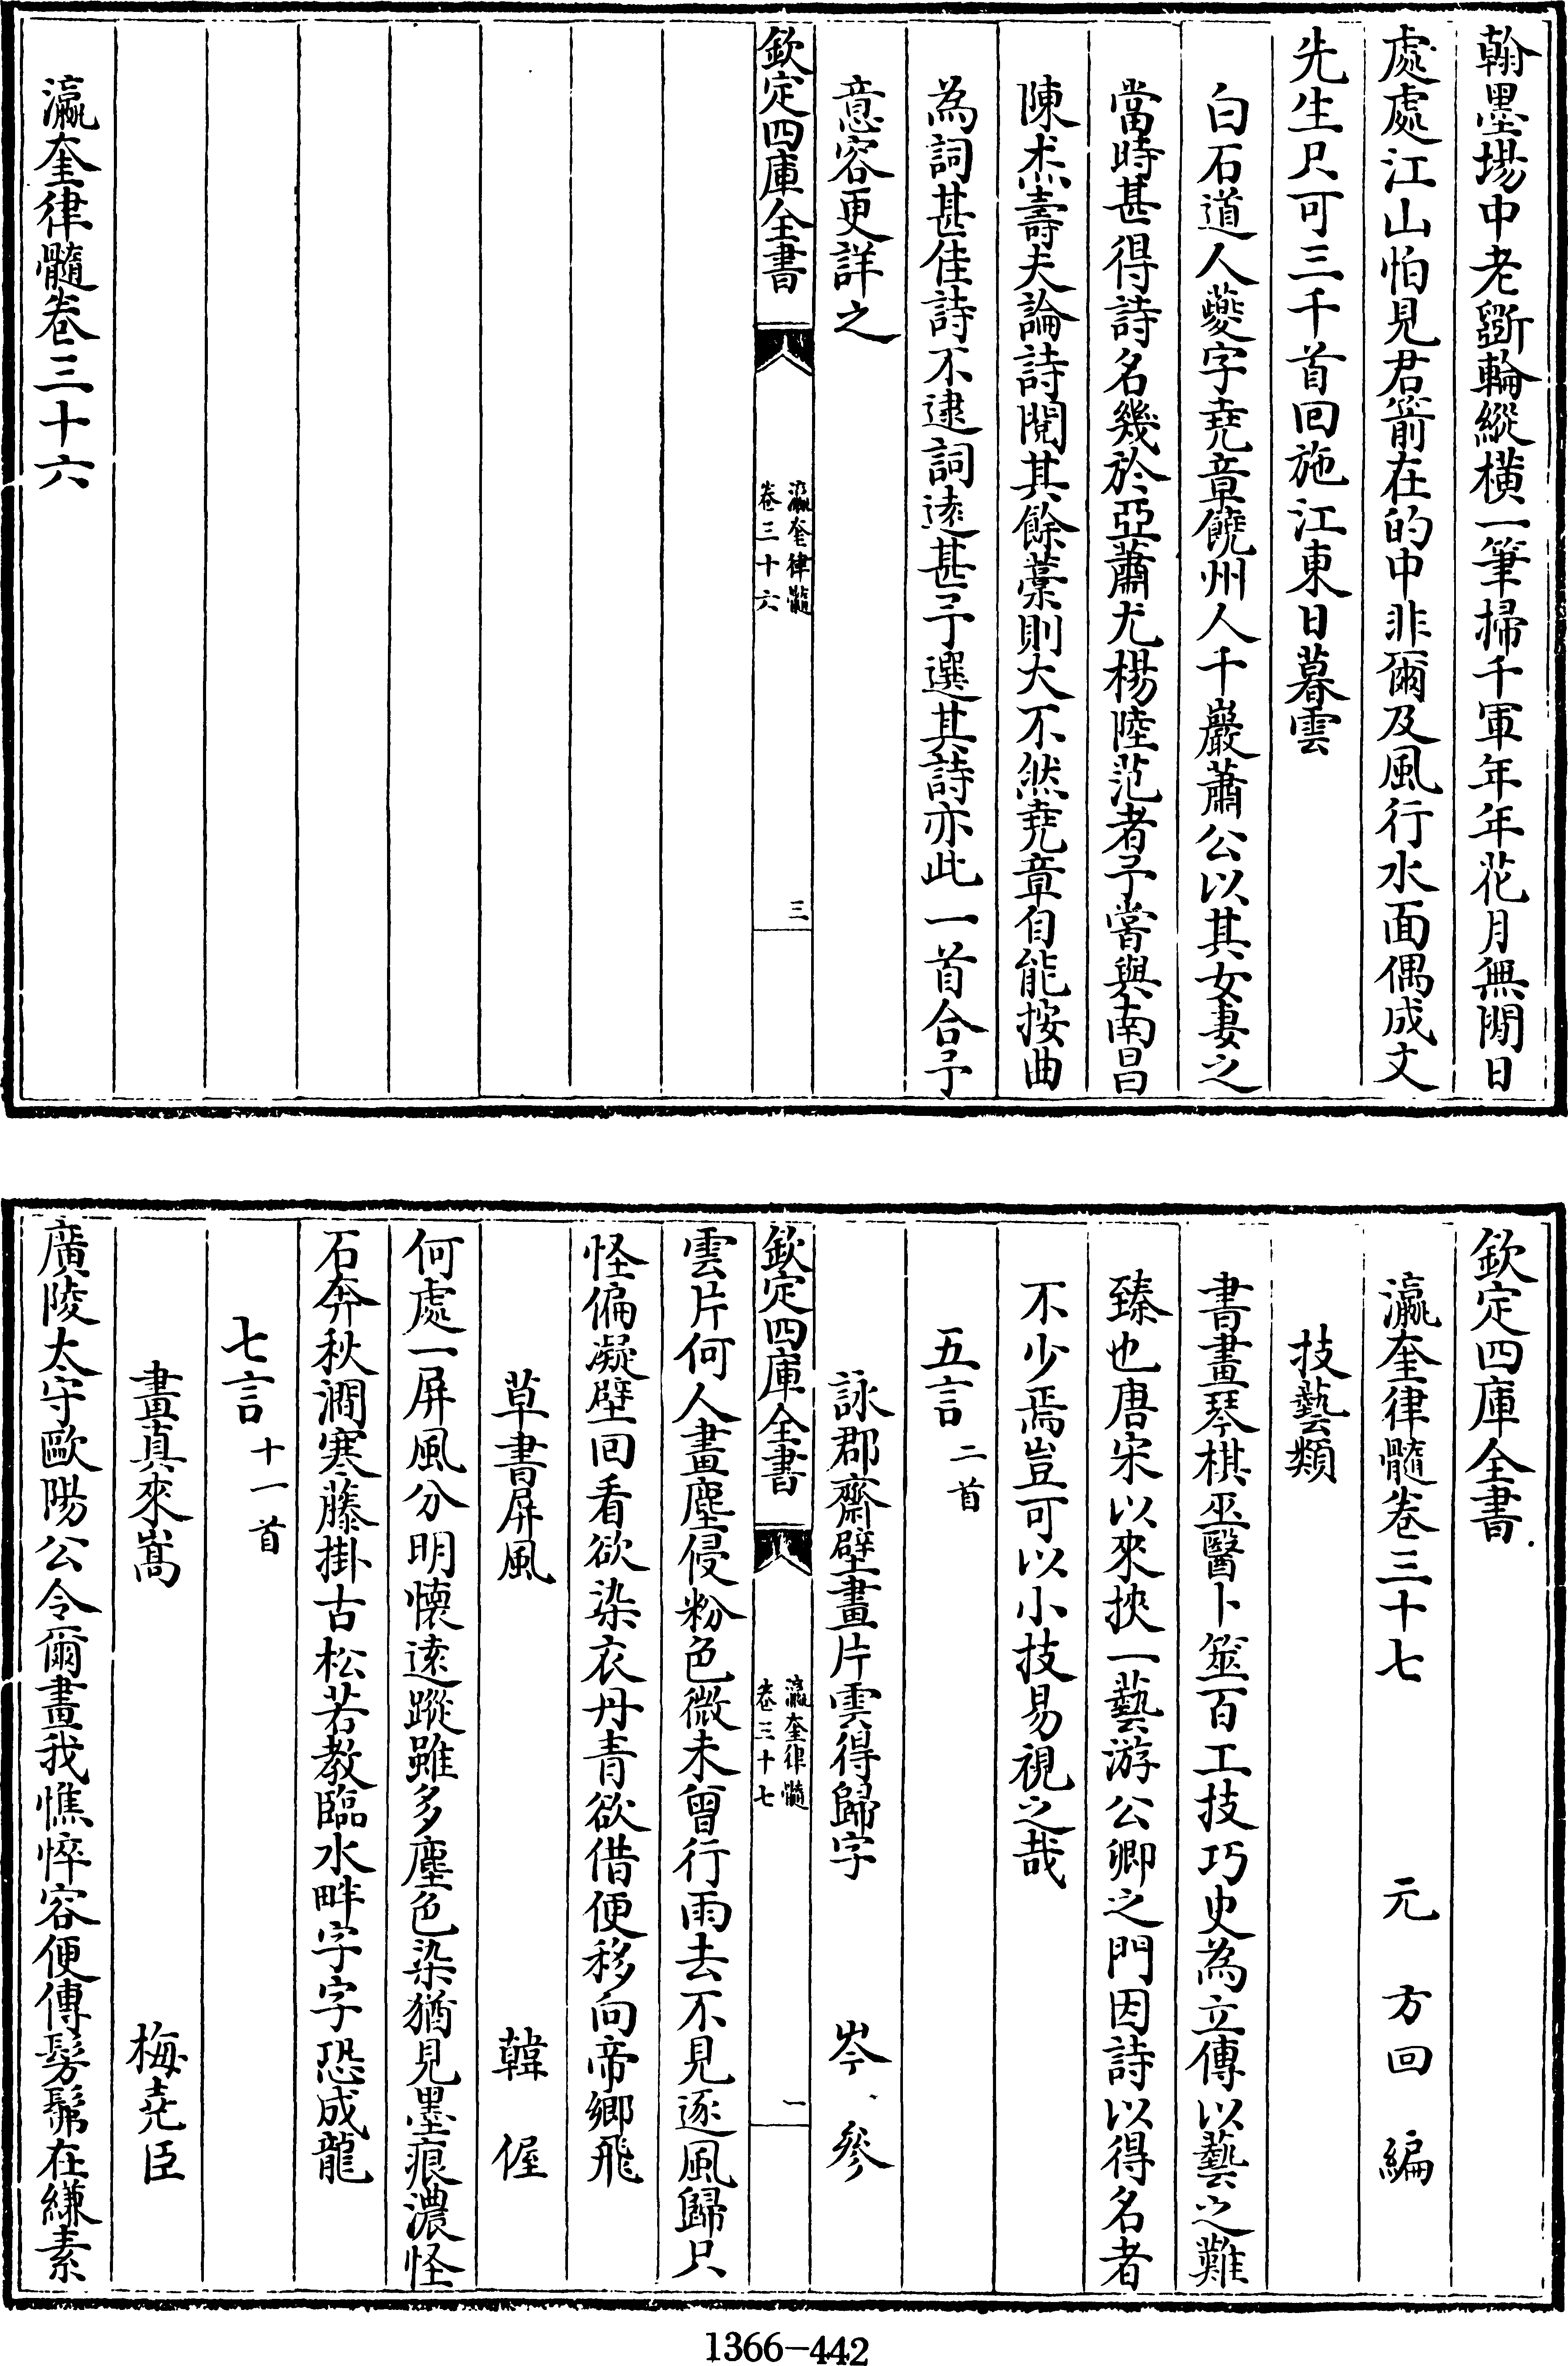 翰墨場中老斵輪縱橫一筆掃千軍年年花月無閒日
處處江山怕見君箭在的中非爾及風行水面偶成文
先生只可三千首回施江東日暮雲
白石道人夔字堯章饒州人千巖蕭公以其女妻之
當時甚得詩名幾於亞蕭尤楊陸范者予嘗與南昌
陳杰壽夫論詩閱其餘藁則大不然堯章自能按曲
為詞甚佳詩不逮詞逺甚予選其詩亦此一首合予
意容更詳之
欽定四庫全書
瀛奎律髓
卷三十六
三
瀛奎律髓卷三十六
欽定四庫全書
瀛奎律髓卷三十七 元 方回 編
技藝類
書畫琴棋巫醫卜筮百工技巧史為立傳以藝之難
臻也唐宋以來挾一藝游公卿之門因詩以得名者
不少焉豈可以小技易視之哉
五言二首
詠郡齋壁畫片雲得歸字 岑參
欽定四庫全書
瀛奎律髓
卷三十七
一
雲片何人畫塵侵粉色微未曾行雨去不見逐風歸只
怪偏凝壁回看欲染衣丹青欲借便移向帝鄉飛
草書屏風 韓偓
何處一屏風分明懷逺蹤雖多塵色染猶見墨痕濃怪
石奔秋澗寒藤掛古松若教臨水畔字字恐成龍
七言十一首
畫真來嵩 梅堯臣
廣陵太守歐陽公令爾畫我憔悴容便傳髣髴在縑素
1366-442